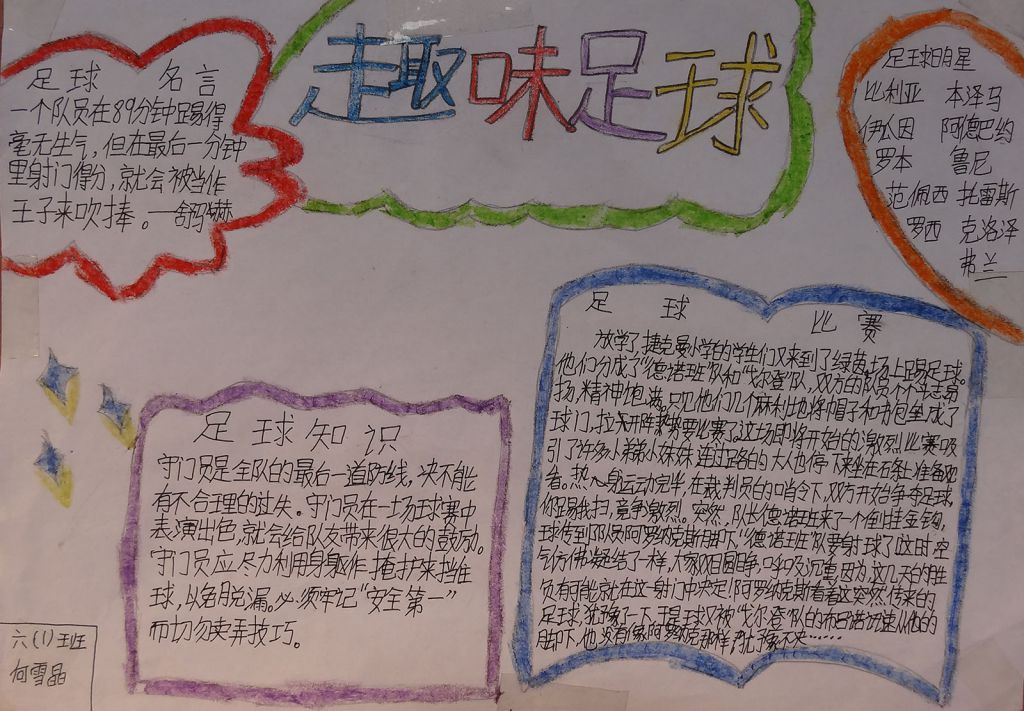 趣味足球
足球 名言
一个队员在89分钟踢得
毫无生气，但在最后一分钟
里射门得分，就会被当作
王子来吹捧。—舒马赫
足球明星
比利亚 本泽马
伊瓜因 阿德巴约
罗本 鲁尼
范佩西 托雷斯
罗西 克洛泽
弗兰
足球知识
守门员是全队的最后一道防线，决不能
有不合理的过失。守门员在一场球赛中
表演出色，就会给队友带来很大的鼓励。
守门员应尽力利用身躯作掩护来挡住
球，以免脱漏。必须牢记“安全第一”
而切勿卖弄技巧。
足球比赛
放学了捷克曼小学的学生们又来到了绿茵场上踢足球。
他们分成了“德诺班”队和“戈尔登”队，双方的队员个个斗志昂
扬，精神饱满。只见他们几个麻利地将帽子和书包垒成了
球门，拉开阵势要比赛了。这场即将开始的激烈比赛吸
引了许多小弟弟小妹妹，连过路的大人也停下来坐在石
看。热心身运动完毕，在裁判员的哨令下，双方开始争夺足球，
你踢我扫，竞争激烈。突然，队长德诺班来了一个倒挂金钩，
球传到队员阿罗纳克斯脚下“德诺班”队要射球了这时空
气仿佛凝结了一样，大家双目圆睁，
负有可能就在这一射门中决定！阿罗纳克斯看着这突然传来的
足球，犹豫了一下，于是球又被“戈尔登”队的布日诺沉迅从他的
脚下，他没有像阿罗纳克那样犹豫不决……
六(1)班
何雪晶